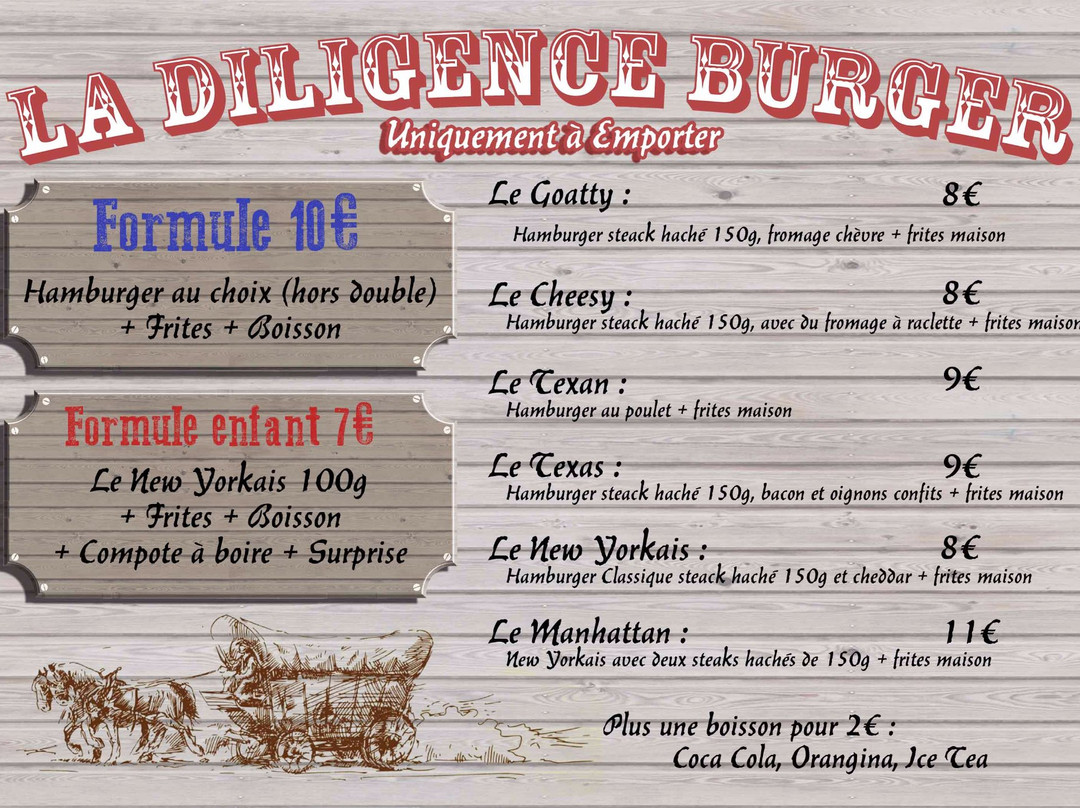 LA DILIGENCE BURGER
Uniquement à Emporter
Formule 10€
Hamburger au choix (hors double)
+ Frites + Boisson
Formule enfant 7€
Le New Yorkais 100g
+ Frites + Boisson
+ Compote à boire + Surprise
Le Goatty : 8€
Hamburger steack haché 150g, fromage chèvre + frites maison
Le Cheesy : 8€
Hamburger steack haché 150g, avec du fromage à raclette + frites maison
Le Texan : 9€
Hamburger au poulet + frites maison
Le Texas : 9€
Hamburger steack haché 150g, bacon et oignons confits + frites maison
Le New Yorkais : 8€
Hamburger Classique steack haché 150g et cheddar + frites maison
Le Manhattan : 11€
New Yorkais avec deux steaks hachés de 150g + frites maison
Plus une boisson pour 2€ :
Coca Cola, Orangina, Ice Tea